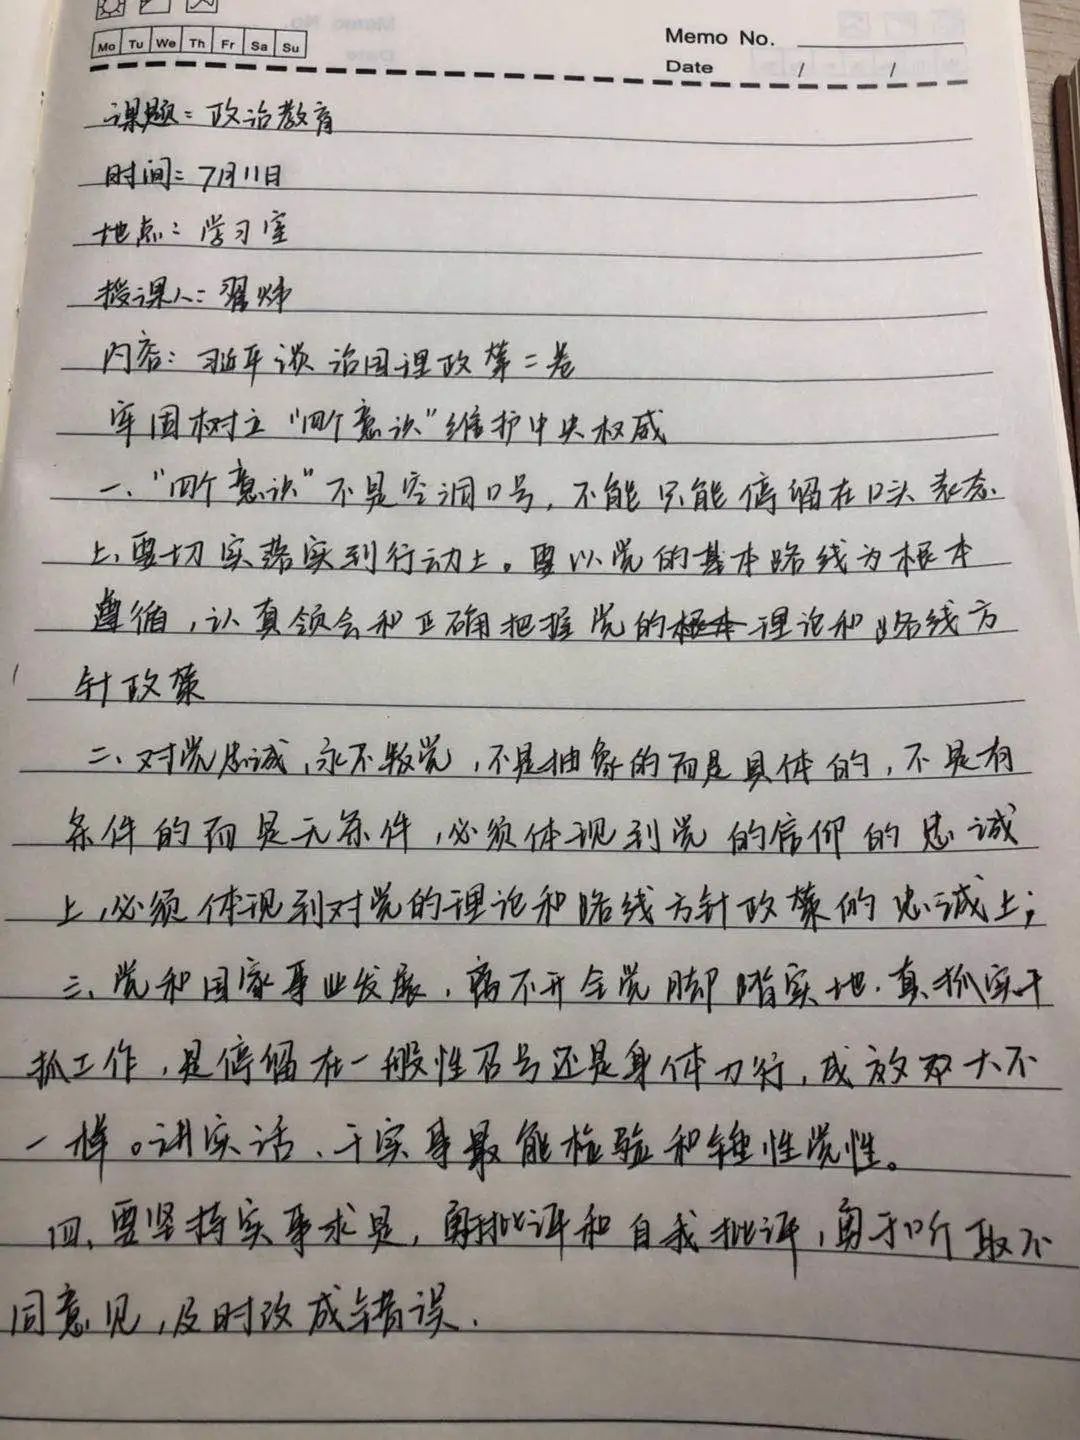 Mo Tu We Th Fr Sa Su
Memo No.
Date / /
课题：政治教育
时间：7月11日
地点：学习室
授课人：翟炜
内容：习近平谈治国理政第二卷
牢固树立“四个意识”维护中央权威
一、“四个意识”不是空洞口号，不能只能停留在口头表态
上，要切实落实到行动上。要以党的基本路线为根本
遵循，认真领会和正确把握党的理论和路线方
针政策
二、对党忠诚，永不叛党，不是抽象的而是具体的，不是有
条件的而是无条件，必须体现到党的信仰的忠诚
上，必须体现到对党的理论和路线方针政策的忠诚上；
三、党和国家事业发展，离不开全党脚踏实地、真抓实干
抓工作，是停留在一般性召号还是身体力行，成效大不
一样。讲实话、干实事最能检验和锤性党性。
四、要坚持实事求是，勇批评和自我批评，勇于听取不
同意见，及时改成错误.